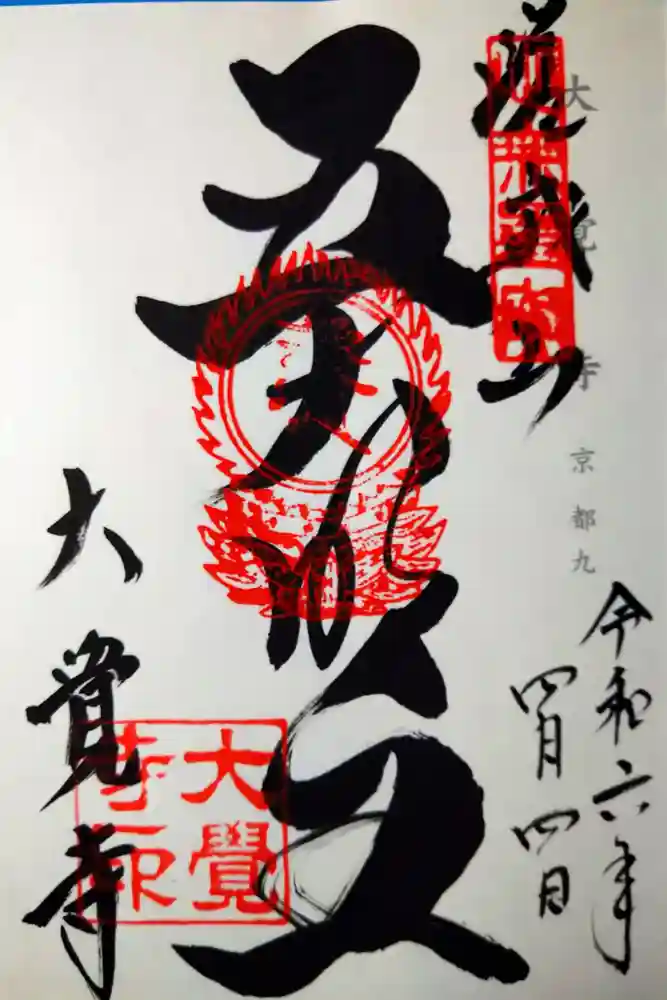 嵯峨山
大覚寺 京都九
令和六年
四月四日
五大明王
大覺寺
大覺
寺印